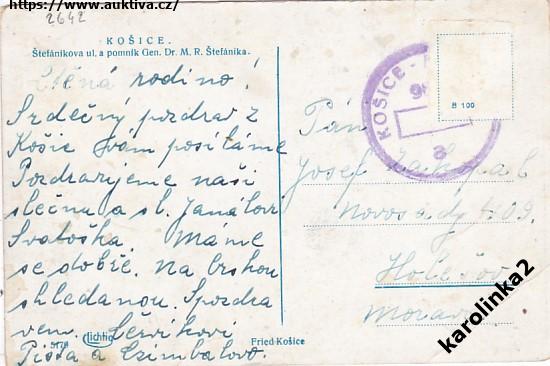 https://www.auktiva.cz/
2642
KOŠICE.
Štefánikova ul. a pomník Gen. Dr. M. R. Štefánika.
Ctěná rodino!
Srdečný pozdrav z
Košic Vám posíláme
Pozdravujeme naši
slečnu a sl.
Svatoška. Máme
se dobře. Na brskou
shledanou. S pozdra
vem. Červíkovi
Pišta a
5178 lichtig Fried-Košice
KOŠICE
a
B 100
Pán
Josef
Novosády 409.
Holešov
Morava
karolinka2